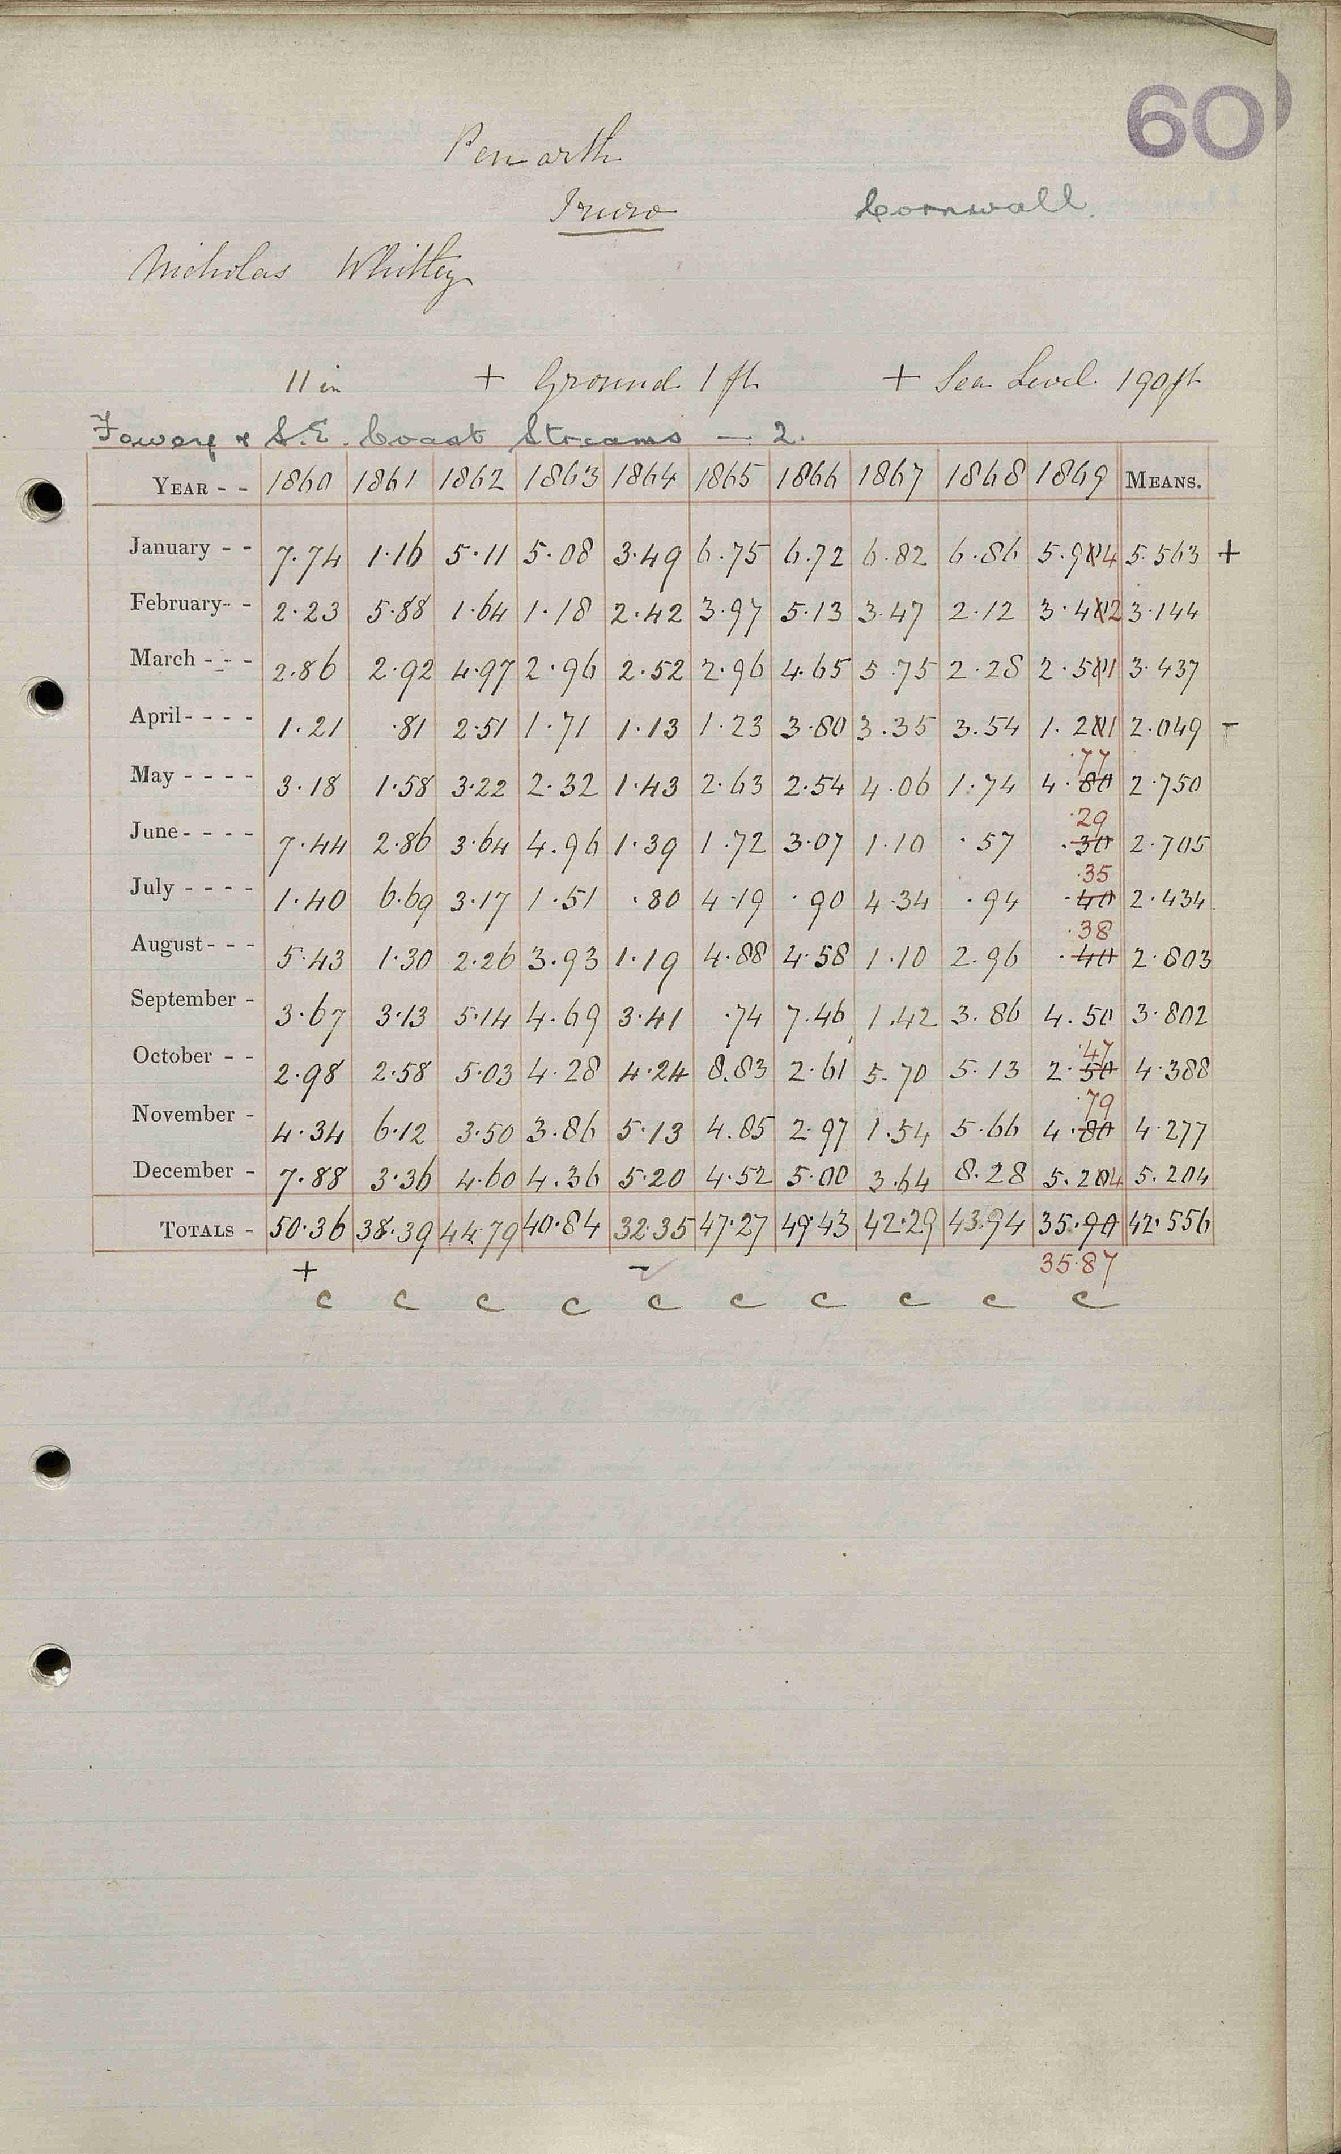 60
Penarth
Truro
Cornwall.
Nicholas Whitley
11 in + Ground 1 ft + Sea Level 190 ft
Fowey & S.E. Coast Streams — 2.
YEAR - - 1860 1861 1862 1863 1864 1865 1866 1867 1868 1869 MEANS.
January - - 7.74 1.16 5.11 5.08 3.49 6.75 6.72 6.82 6.86 5.904 5.563 +
February - - 2.23 5.88 1.64 1.18 2.42 3.97 5.13 3.47 2.12 3.402 3.144
March - - - 2.86 2.92 4.97 2.96 2.52 2.96 4.65 5.75 2.28 2.501 3.437
April - - - - 1.21 .81 2.51 1.71 1.13 1.23 3.80 3.35 3.54 1.201 2.049 -
.77
May - - - - 3.18 1.58 3.22 2.32 1.43 2.63 2.54 4.06 1.74 4.80 2.750
.29
June - - - - 7.44 2.86 3.64 4.96 1.39 1.72 3.07 1.10 .57 .30 2.705
.35
July - - - - 1.40 6.69 3.17 1.51 .80 4.19 .90 4.34 .94 .40 2.434
.38
August - - - 5.43 1.30 2.26 3.93 1.19 4.88 4.58 1.10 2.96 .40 2.803
September - 3.67 3.13 5.14 4.69 3.41 .74 7.46 1.42 3.86 4.50 3.802
.47
October - - 2.98 2.58 5.03 4.28 4.24 8.83 2.61 5.70 5.13 2.50 4.388
.79
November - 4.34 6.12 3.50 3.86 5.13 4.85 2.97 1.54 5.66 4.80 4.277
December - 7.88 3.36 4.60 4.36 5.20 4.52 5.00 3.64 8.28 5.204 5.204
TOTALS - 50.36 38.39 44.79 40.84 32.35 47.27 49.43 42.29 43.94 35.90 42.556
+ - 35.87
c c c c c c c c c c